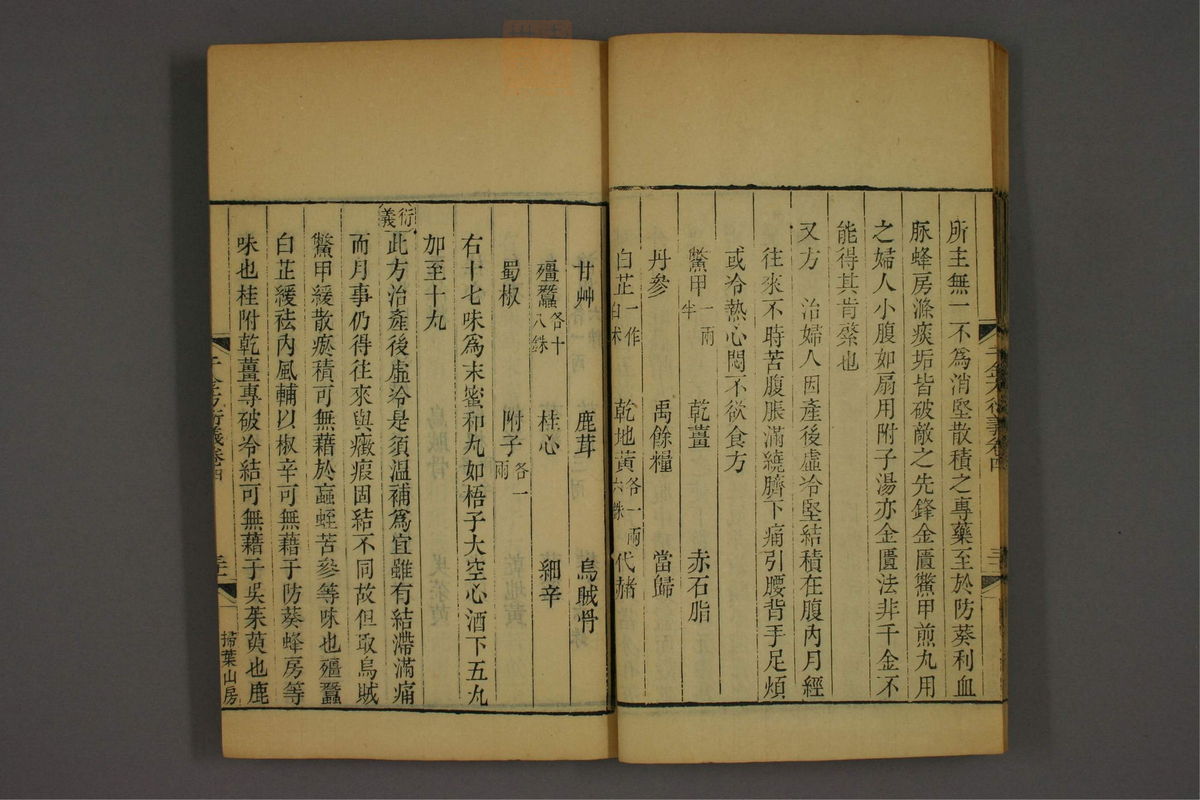 所主無一不為消堅散積之專藥至於防葵利血
脉蜂房滌痰垢皆破敵之先鋒金匱鱉甲煎丸用
之婦人小腹如扇用附子湯亦金匱法非千金不
能得其肯綮也
又方　治婦人因產後虛冷堅結積在腹內月經
往來不時苦腹脹滿繞臍下痛引腰背手足煩
或冷熱心悶不欲食方
鱉甲一兩半　乾薑　赤石脂
丹參　禹餘糧　當歸
白芷一作白朮　乾地黃各一兩六銖　代赭
甘艸　鹿茸　烏賊骨
殭蠶各十八銖　桂心　細辛
蜀椒　附子各一兩
右十七味為末蜜和丸如梧子大空心酒下五丸
加至十丸
衍義　此方治產後虛冷是須溫補為宜雖有結滯滿痛
而月事仍得往來與癥瘕固結不同故但取烏賊
鱉甲緩散瘀積可無藉於蝱蛭苦參等味也殭蠶
白芷緩祛內風輔以椒辛可無藉于防葵蜂房等
味也桂附乾薑專破冷結可無藉于吳茱萸也鹿
千金方衍義卷四
掃葉山房